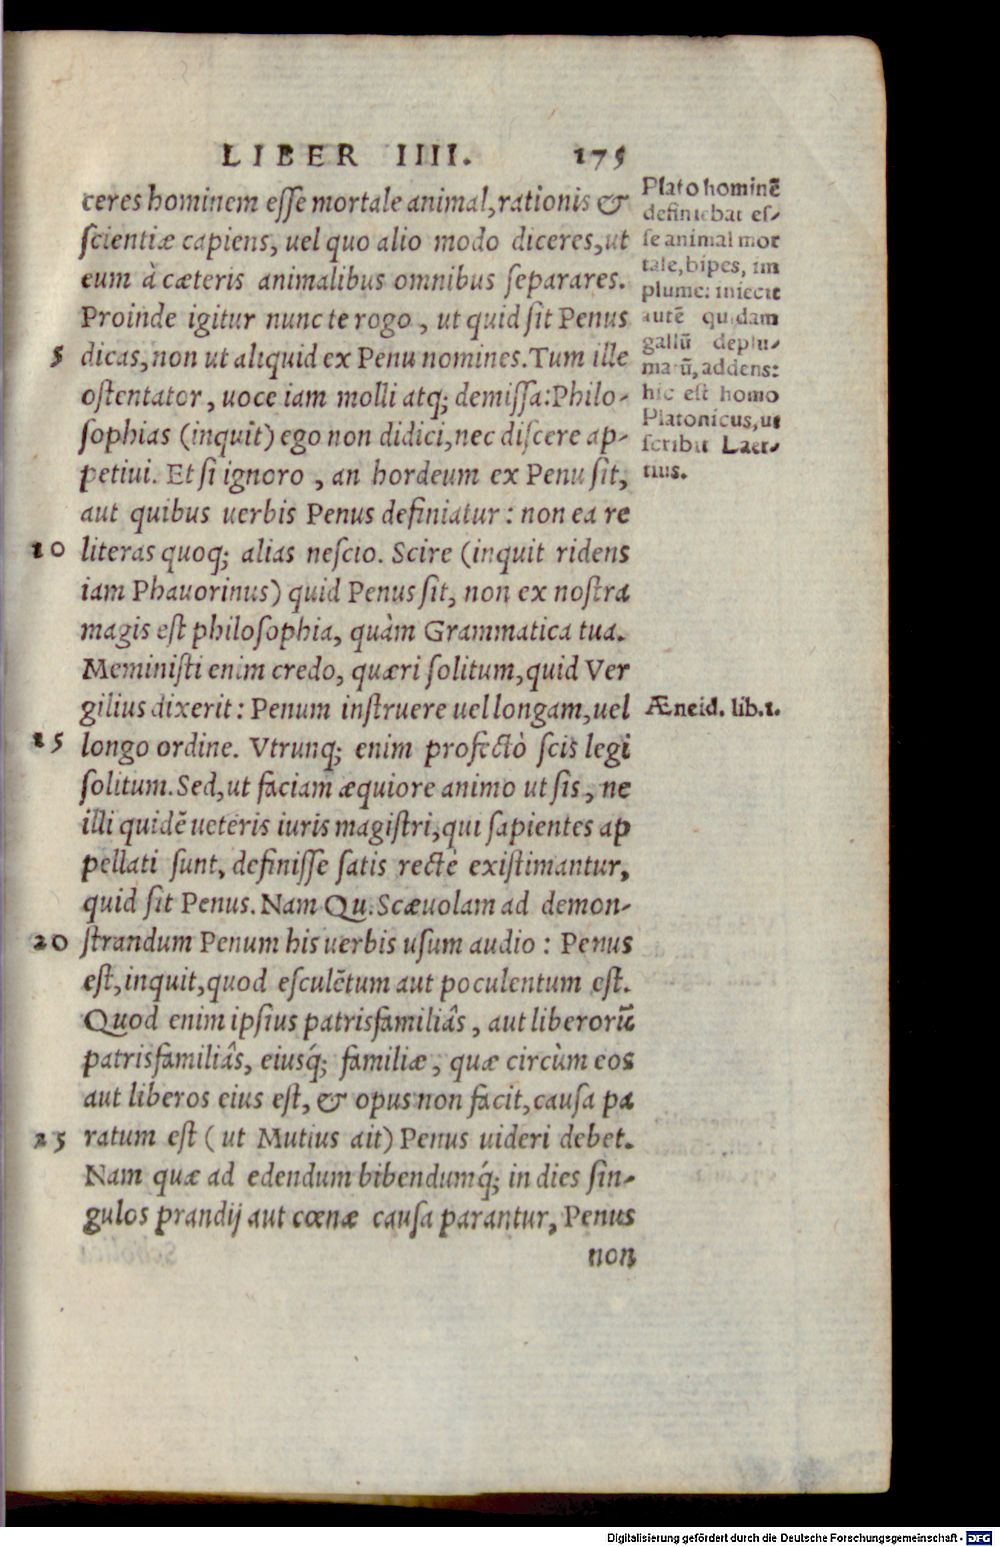 LIBER IIII. 175
ceres hominem esse mortale animal, rationis &
scientiæ capiens, uel quo alio modo diceres, ut
eum à cæteris animalibus omnibus separares.
Proinde igitur nunc te rogo, ut quid sit Penus
5 dicas, non ut aliquid ex Penu nomines. Tum ille
ostentator, uoce iam molli atq; demissa: Philo-
sophias (inquit) ego non didici, nec discere ap-
petiui. Et si ignoro, an hordeum ex Penu sit,
aut quibus uerbis Penus definiatur: non ea re
10 literas quoq; alias nescio. Scire (inquit ridens
iam Phauorinus) quid Penus sit, non ex nostra
magis est philosophia, quàm Grammatica tua.
Meministi enim credo, quæri solitum, quid Ver
gilius dixerit: Penum instruere uel longam, uel
15 longo ordine. Vtrunq; enim profectò scis legi
solitum. Sed, ut faciam æquiore animo ut sis, ne
illi quidē ueteris iuris magistri, qui sapientes ap
pellati sunt, definisse satis rectè existimantur,
quid sit Penus. Nam Qu. Scæuolam ad demon-
20 strandum Penum his uerbis usum audio: Penus
est, inquit, quod esculētum aut poculentum est.
Quod enim ipsius patrisfamiliâs, aut liberorū
patrisfamiliâs, eiusq́; familiæ, quæ circùm eos
aut liberos eius est, & opus non facit, causa pa
25 ratum est (ut Mutius ait) Penus uideri debet.
Nam quæ ad edendum bibendumq́; in dies sin-
gulos prandij aut cœnæ causa parantur, Penus
non
Plato hominē
definiebat es-
se animal mor
tale, bipes, im
plume: iniecit
autē quidam
gallū deplu-
matū, addens:
hic est homo
Platonicus, ut
scribit Laer-
tius.
Æneid. lib.1.
Digitalisierung gefördert durch die Deutsche Forschungsgemeinschaft - DFG